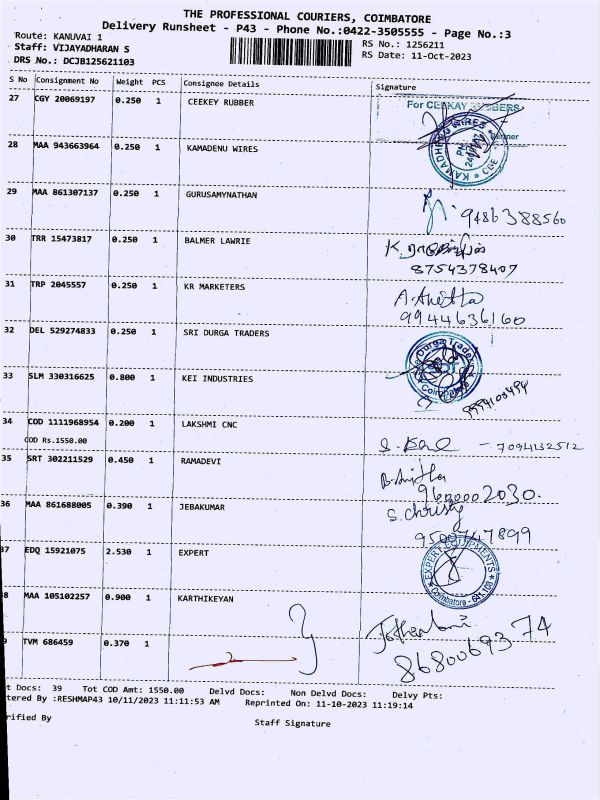 THE PROFESSIONAL COURIERS, COIMBATORE
Delivery Runsheet - P43 - Phone No.:0422-3505555 - Page No.:3
Route: KANUVAI 1
RS No.: 1256211
Staff: VIJAYADHARAN S
RS Date: 11-Oct-2023
DRS No.: DCJB125621103
S No Consignment No Weight PCS Consignee Details Signature
27 CGY 20069197 0.250 1 CEEKEY RUBBER
For CEEKAY RUBBERS
28 MAA 943663964 0.250 1 KAMADENU WIRES
KAMADHENU WIRES CGE
29 MAA 861307137 0.250 1 GURUSAMYNATHAN
9486388560
30 TRR 15473817 0.250 1 BALMER LAWRIE
K.
8754378407
31 TRP 2045557 0.250 1 KR MARKETERS
A. Anitta
9944636160
32 DEL 529274833 0.250 1 SRI DURGA TRADERS
Durga Traders
33 SLM 330316625 0.800 1 KEI INDUSTRIES
34 COD 1111968954 0.200 1 LAKSHMI CNC
COD Rs.1550.00
- 7094132512
35 SRT 302211529 0.450 1 RAMADEVI
9600002030.
36 MAA 861688005 0.390 1 JEBAKUMAR
S. Christy
9500747899
37 EDQ 15921075 2.530 1 EXPERT
EXPERT EQUIPMENTS
Coimbatore - 641 108
8 MAA 105102257 0.900 1 KARTHIKEYAN
8680069374
9 TVM 686459 0.370 1
t Docs: 39 Tot COD Amt: 1550.00 Delvd Docs: Non Delvd Docs: Delvy Pts:
tered By :RESHMAP43 10/11/2023 11:11:53 AM Reprinted On: 11-10-2023 11:19:14
rified By
Staff Signature